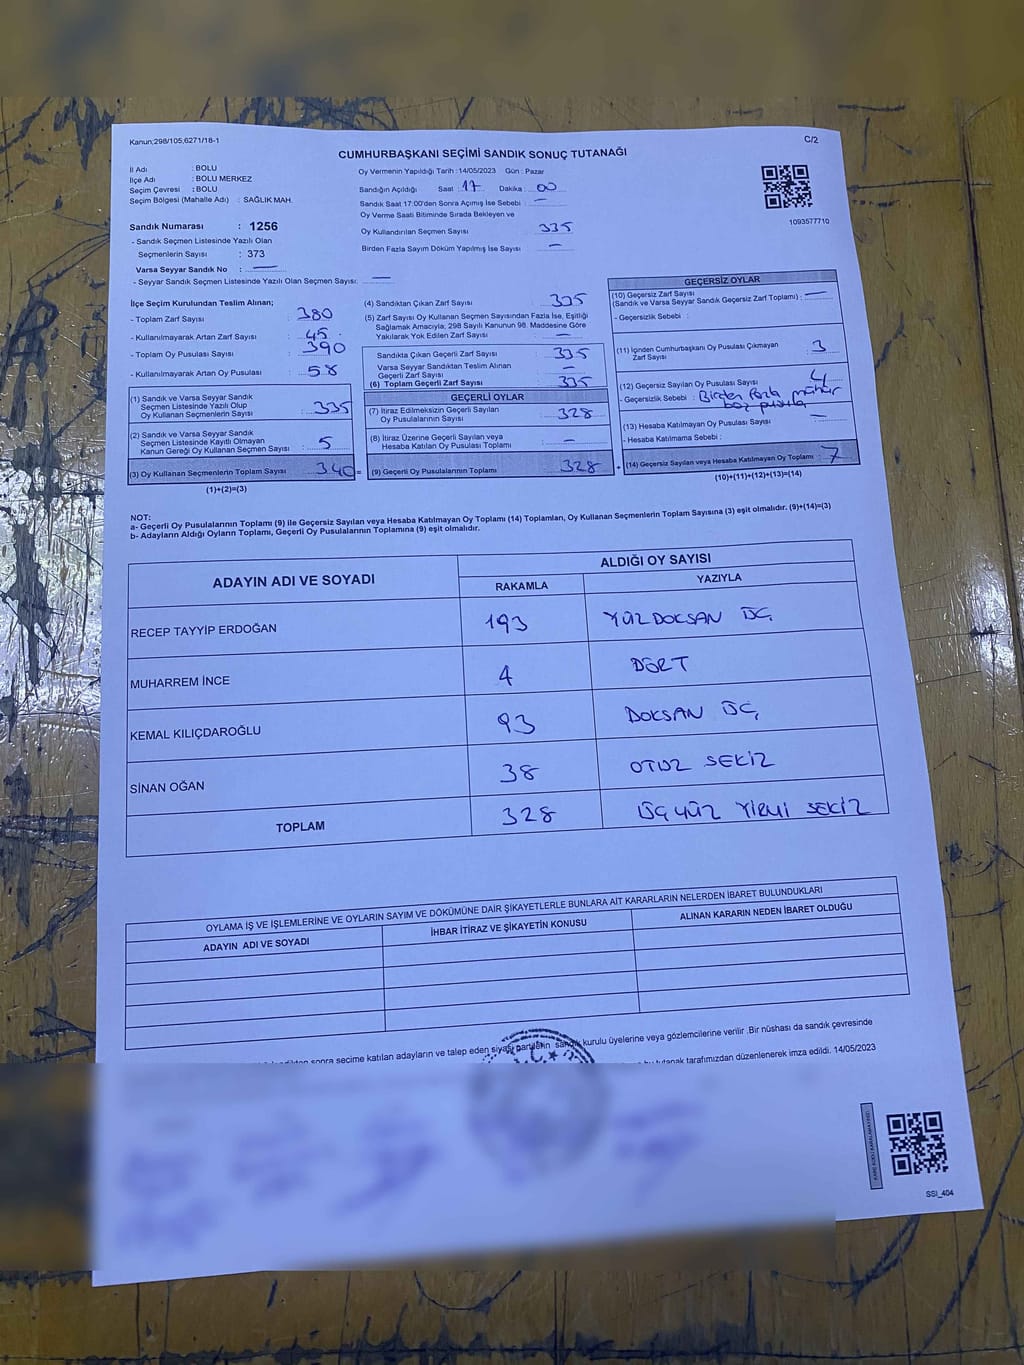 Kanun;298/105,6271/18-1
C/2
CUMHURBAŞKANI SEÇİMİ SANDIK SONUÇ TUTANAĞI
İl Adı : BOLU
İlçe Adı : BOLU MERKEZ
Seçim Çevresi : BOLU
Seçim Bölgesi (Mahalle Adı) : SAĞLIK MAH.
Sandık Numarası : 1256
- Sandık Seçmen Listesinde Yazılı Olan
Seçmenlerin Sayısı : 373
Varsa Seyyar Sandık No : —
- Seyyar Sandık Seçmen Listesinde Yazılı Olan Seçmen Sayısı: —
Oy Vermenin Yapıldığı Tarih : 14/05/2023 Gün : Pazar
Sandığın Açıldığı Saat : 17 Dakika : 00
Sandık Saat 17:00'den Sonra Açımış İse Sebebi : —
Oy Verme Saati Bitiminde Sırada Bekleyen ve
Oy Kullandırılan Seçmen Sayısı : 335
Birden Fazla Sayım Döküm Yapılmış İse Sayısı : —
1093577710
İlçe Seçim Kurulundan Teslim Alınan;
- Toplam Zarf Sayısı : 380
- Kullanılmayarak Artan Zarf Sayısı : 45
- Toplam Oy Pusulası Sayısı : 390
- Kullanılmayarak Artan Oy Pusulası : 58
(1) Sandık ve Varsa Seyyar Sandık
Seçmen Listesinde Yazılı Olup
Oy Kullanan Seçmenlerin Sayısı : 335
(2) Sandık ve Varsa Seyyar Sandık
Seçmen Listesinde Kayıtlı Olmayan
Kanun Gereği Oy Kullanan Seçmen Sayısı : 5
(3) Oy Kullanan Seçmenlerin Toplam Sayısı : 340 =
(1)+(2)=(3)
(4) Sandıktan Çıkan Zarf Sayısı : 335
(5) Zarf Sayısı Oy Kullanan Seçmen Sayısından Fazla İse, Eşitliği
Sağlamak Amacıyla; 298 Sayılı Kanunun 98. Maddesine Göre
Yakılarak Yok Edilen Zarf Sayısı : —
Sandıkta Çıkan Geçerli Zarf Sayısı : 335
Varsa Seyyar Sandıktan Teslim Alınan
Geçerli Zarf Sayısı : —
(6) Toplam Geçerli Zarf Sayısı : 335
GEÇERLİ OYLAR
(7) İtiraz Edilmeksizin Geçerli Sayılan
Oy Pusulalarının Sayısı : 328
(8) İtiraz Üzerine Geçerli Sayılan veya
Hesaba Katılan Oy Pusulası Toplamı : —
(9) Geçerli Oy Pusulalarının Toplamı : 328 +
GEÇERSİZ OYLAR
(10) Geçersiz Zarf Sayısı
(Sandık ve Varsa Seyyar Sandık Geçersiz Zarf Toplamı) : —
- Geçersizlik Sebebi :
(11) İçinden Cumhurbaşkanı Oy Pusulası Çıkmayan
Zarf Sayısı : 3
(12) Geçersiz Sayılan Oy Pusulası Sayısı : 4
- Geçersizlik Sebebi : Birden fazla mühür
boş pusula
(13) Hesaba Katılmayan Oy Pusulası Sayısı : —
- Hesaba Katılmama Sebebi :
(14) Geçersiz Sayılan veya Hesaba Katılmayan Oy Toplamı : 7
(10)+(11)+(12)+(13)=(14)
NOT:
a- Geçerli Oy Pusulalarının Toplamı (9) ile Geçersiz Sayılan veya Hesaba Katılmayan Oy Toplamı (14) Toplamları, Oy Kullanan Seçmenlerin Toplam Sayısına (3) eşit olmalıdır. (9)+(14)=(3)
b- Adayların Aldığı Oyların Toplamı, Geçerli Oy Pusulalarının Toplamına (9) eşit olmalıdır.
ADAYIN ADI VE SOYADI
ALDIĞI OY SAYISI
RAKAMLA YAZIYLA
RECEP TAYYİP ERDOĞAN 193 YÜZDOKSAN ÜÇ
MUHARREM İNCE 4 DÖRT
KEMAL KILIÇDAROĞLU 93 DOKSAN ÜÇ
SİNAN OĞAN 38 OTUZ SEKİZ
TOPLAM 328 ÜÇYÜZ YİRMİ SEKİZ
OYLAMA İŞ VE İŞLEMLERİNE VE OYLARIN SAYIM VE DÖKÜMÜNE DAİR ŞİKAYETLERLE BUNLARA AİT KARARLARIN NELERDEN İBARET BULUNDUKLARI
ADAYIN ADI VE SOYADI İHBAR İTİRAZ VE ŞİKAYETİN KONUSU ALINAN KARARIN NEDEN İBARET OLDUĞU
sonra seçime katılan adayların ve talep eden siyasi partilerin sandık kurulu üyelerine veya gözlemcilerine verilir .Bir nüshası da sandık çevresinde
tutanak tarafımızdan düzenlenerek imza edildi. 14/05/2023
SSI_404